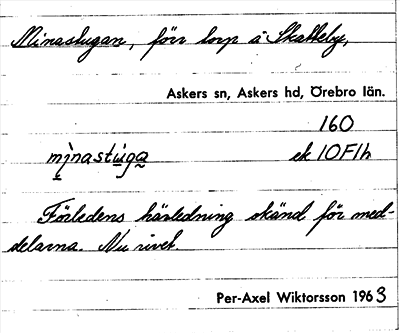 Minastugan, förr torp å Skatteby,
Askers sn, Askers hd, Örebro län.
160
mìnastu̇ga ek 10F1h
Förledens härledning okänd för med-
delarna. Nu rivet.
Per-Axel Wiktorsson 1963